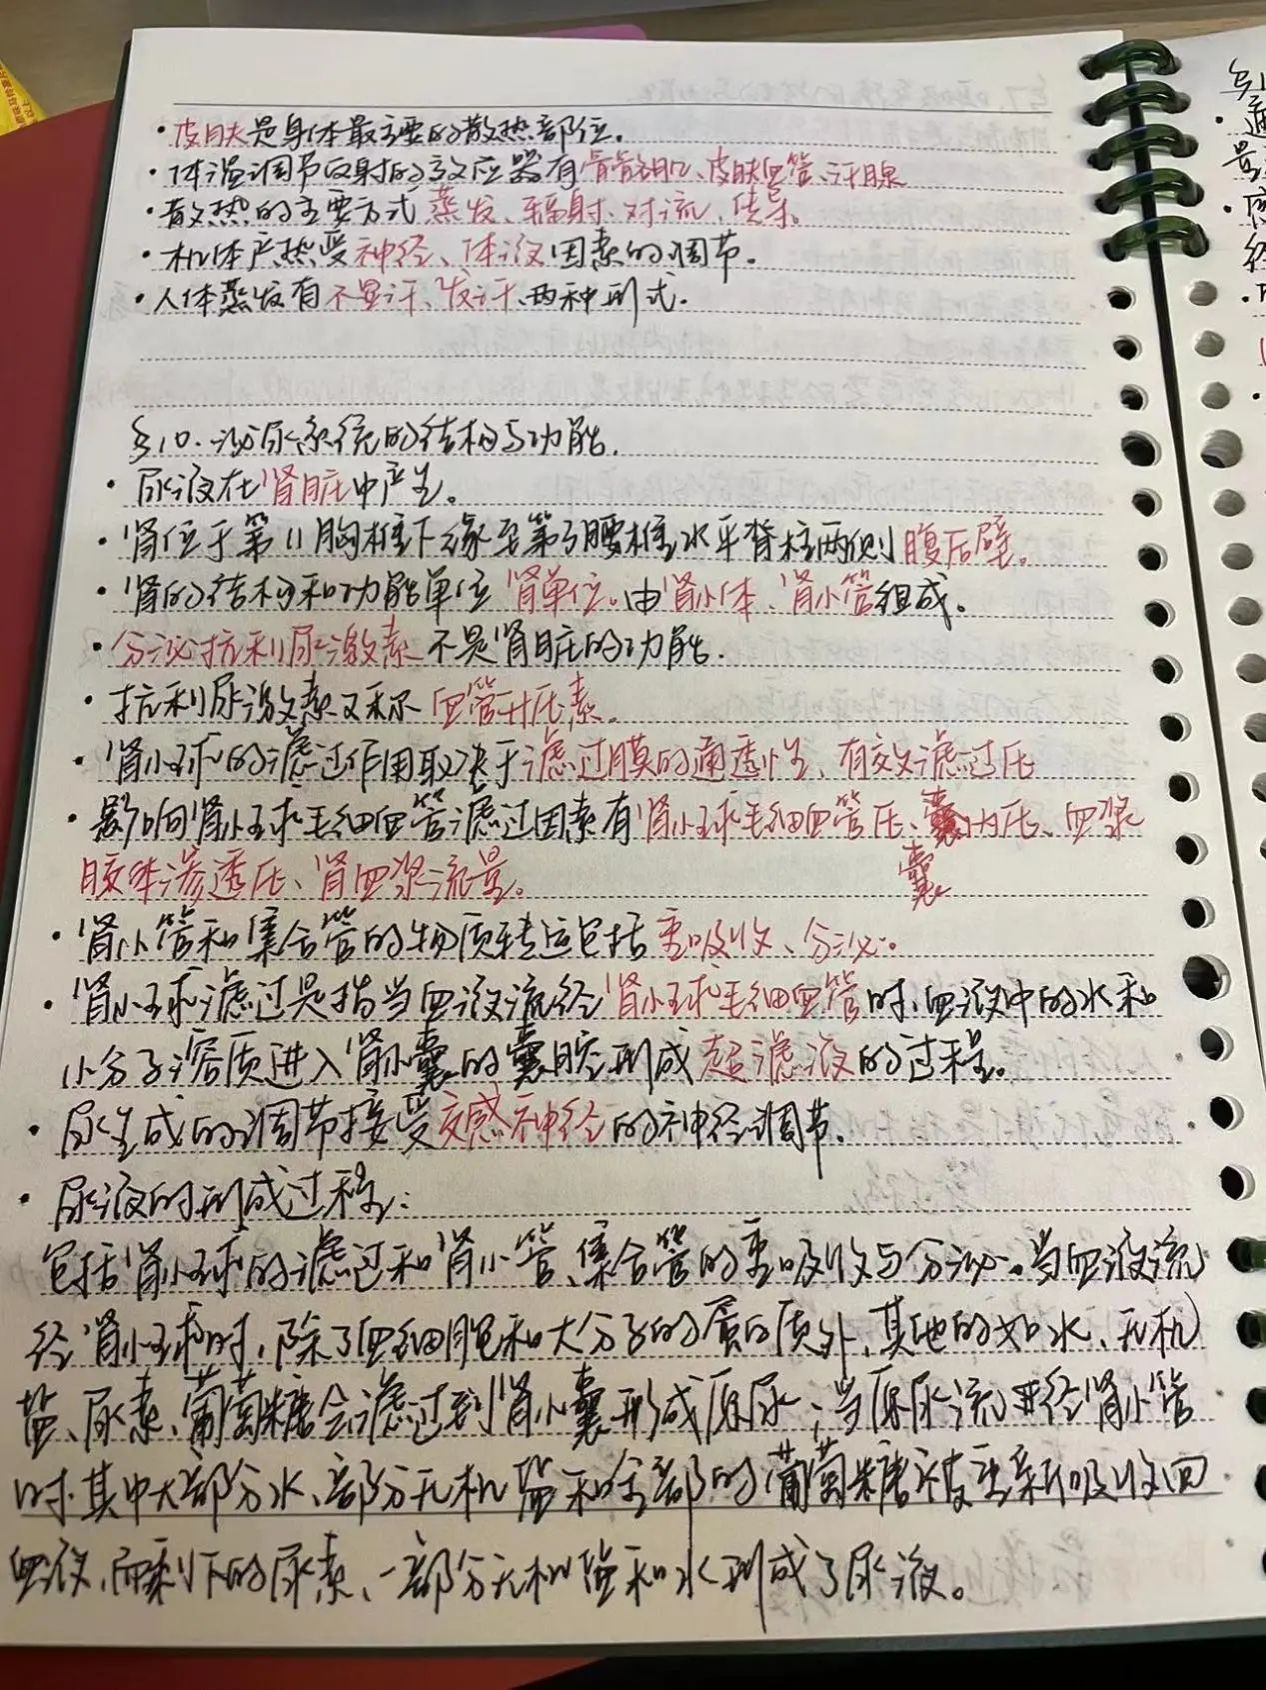 ·皮肤是身体最主要的散热部位。
·体温调节反射的效应器有骨骼肌、皮肤血管、汗腺
·散热的主要方式蒸发、辐射、对流、传导。
·机体产热受神经、体液因素的调节。
·人体蒸发有不显汗、发汗、两种形式.
§10.泌尿系统的结构与功能.
·尿液在肾脏中产生。
·肾位于第11胸椎下缘至第3腰椎水平脊柱两侧腹后壁。
·肾的结构和功能单位 肾单位。由肾小体、肾小管组成。
·分泌抗利尿激素不是肾脏的功能.
·抗利尿激素又称 血管升压素。
·肾小球的滤过作用取决于滤过膜的通透性、有效滤过压
·影响肾小球毛细血管滤过因素有肾小球毛细血管压、囊内压、血浆
胶体渗透压、肾血浆流量。
囊
·肾小管和集合管的物质转运包括重吸收、分泌。
·肾小球滤过是指当血液流经肾小球毛细血管时,血液中的水和
小分子溶质进入肾小囊的囊腔形成超滤液的过程。
·尿生成的调节接受交感神经的神经调节.
·尿液的形成过程:
包括肾小球的滤过和肾小管、集合管的重吸收与分泌。当血液流
经肾小球时,除了血细胞和大分子的蛋白质外,其他的如水、无机
盐、尿素、葡萄糖会滤过到肾小囊形成原尿;当原尿流经肾小管
时.其中大部分水、部分无机盐和全部的葡萄糖被重新吸收回
血液,而剩下的尿素、一部分无机盐和水形成了尿液。